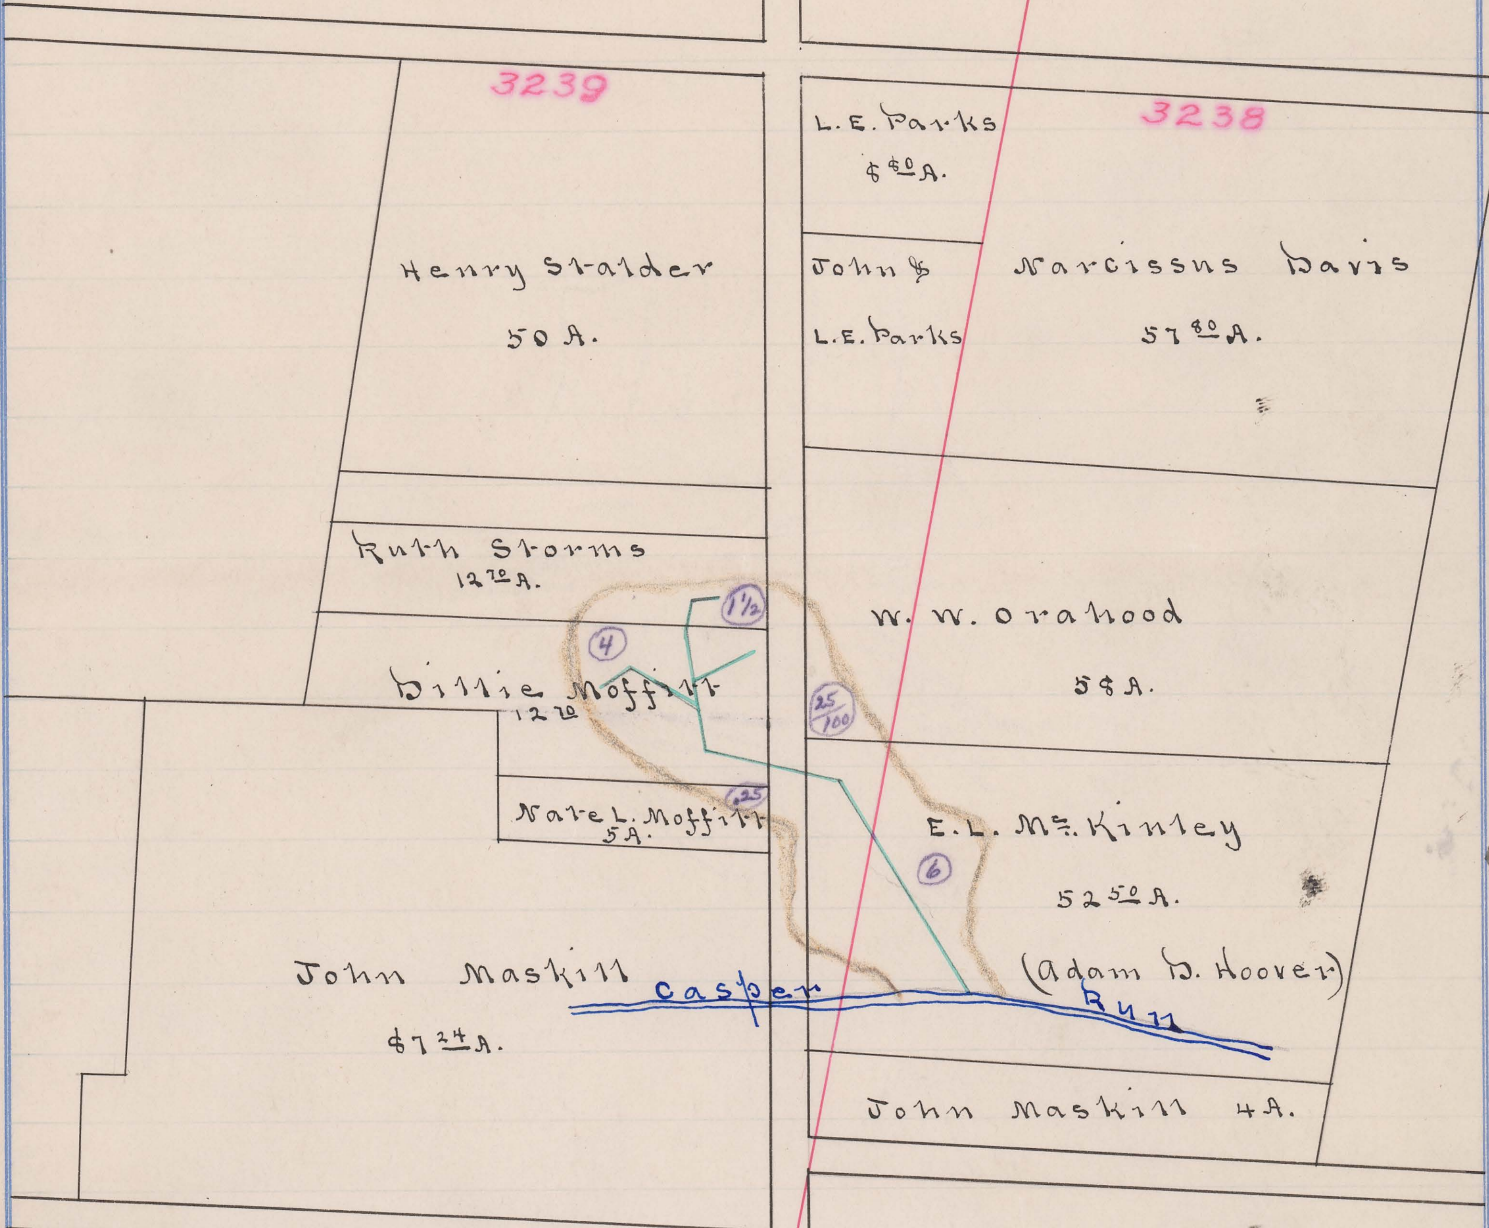 3239
3238
L. E. Parks
8 80 A.
Henry Stalder
50 A.
John &
L. E. Parks
Narcissus Davis
57 80 A.
Ruth Storms
12 70 A.
1 1/2
4
Dillie Moffitt
12 70
W. W. Orahood
58 A.
25/100
.25
Nate L. Moffitt
5 A.
E. L. Mc. Kinley
6
52 50 A.
(Adam D. Hoover)
John Maskill
87 24 A.
Casper Run
John Maskill 4 A.